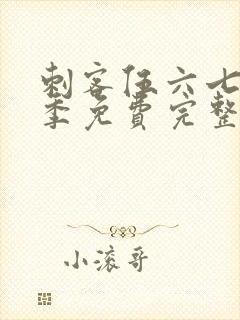 刺客伍六七
季免費完整
小滾哥